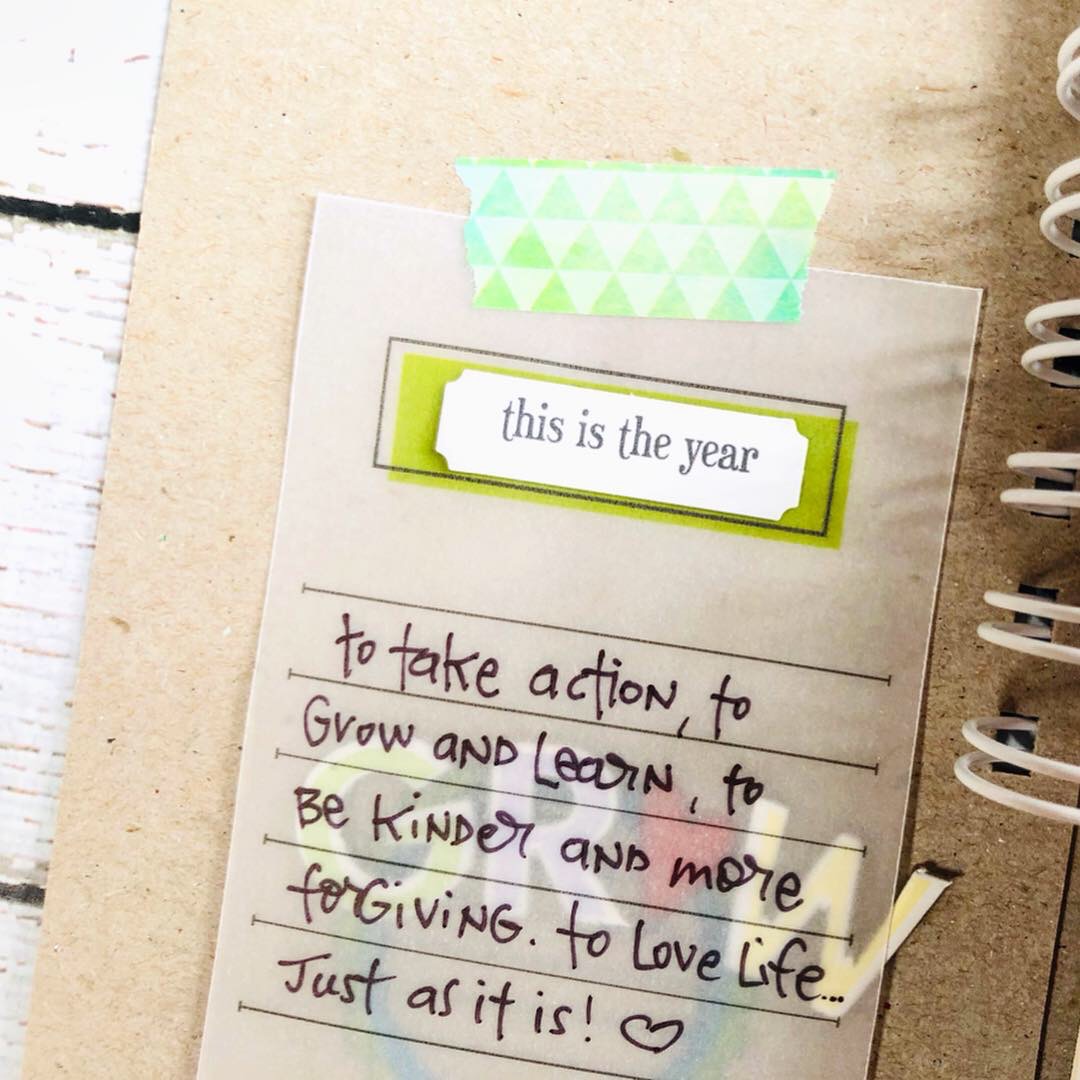 this is the year
to take action, to
Grow AND LearN, to
Be KiNDer AND more
forGiViNG. to Love Life...
Just as it is! ♡
GR♥W